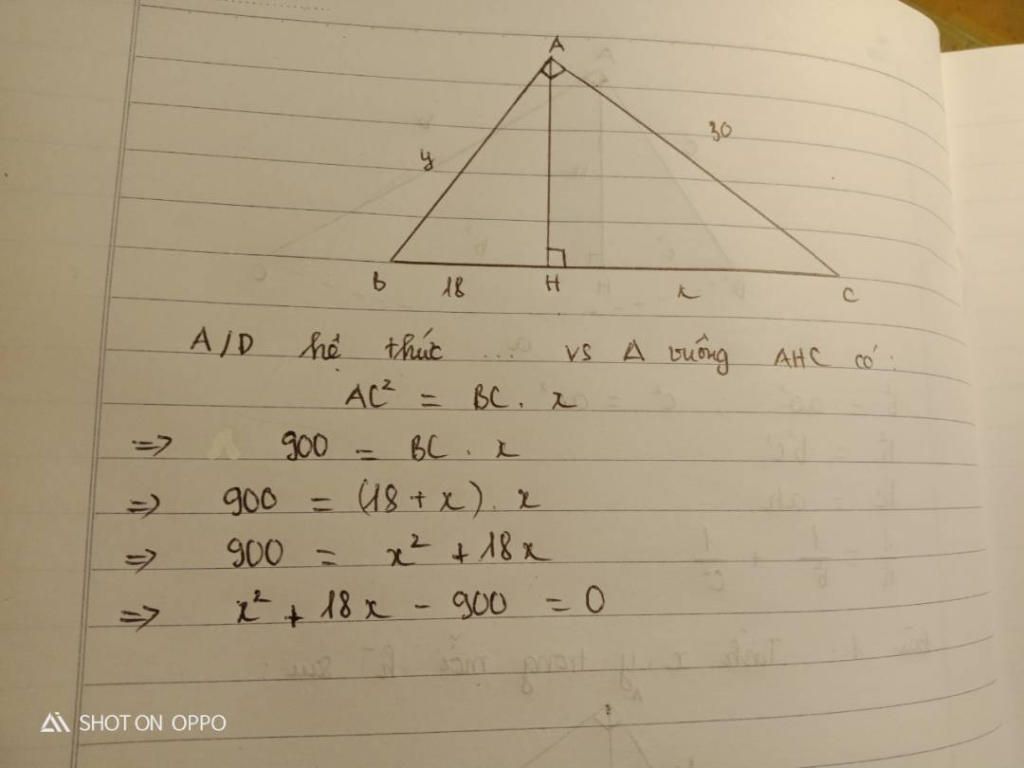 A
y
30
B
18
H
x
C
A/D hệ thức ... vs Δ vuông AHC có:
AC² = BC . x
=> 900 = BC . x
=> 900 = (18 + x) . x
=> 900 = x² + 18x
=> x² + 18x - 900 = 0
SHOT ON OPPO